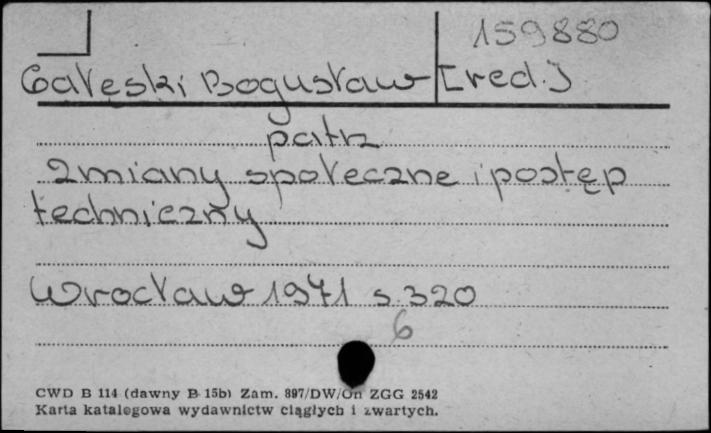 159880
Gałęski Bogusław [red.]
patrz
Zmiany społeczne i postęp
techniczny
Wrocław 1971 s. 320
6
CWD B 114 (dawny B 15b) Zam. 897/DW/On ZGG 2542
Karta katalogowa wydawnictw ciągłych i zwartych.